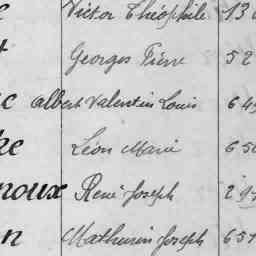 Victor Théophile
Georges Pierre 52
Albert Valentin Louis 64
Léon Marie 65
noux René Joseph 29
n Mathurin Joseph 651